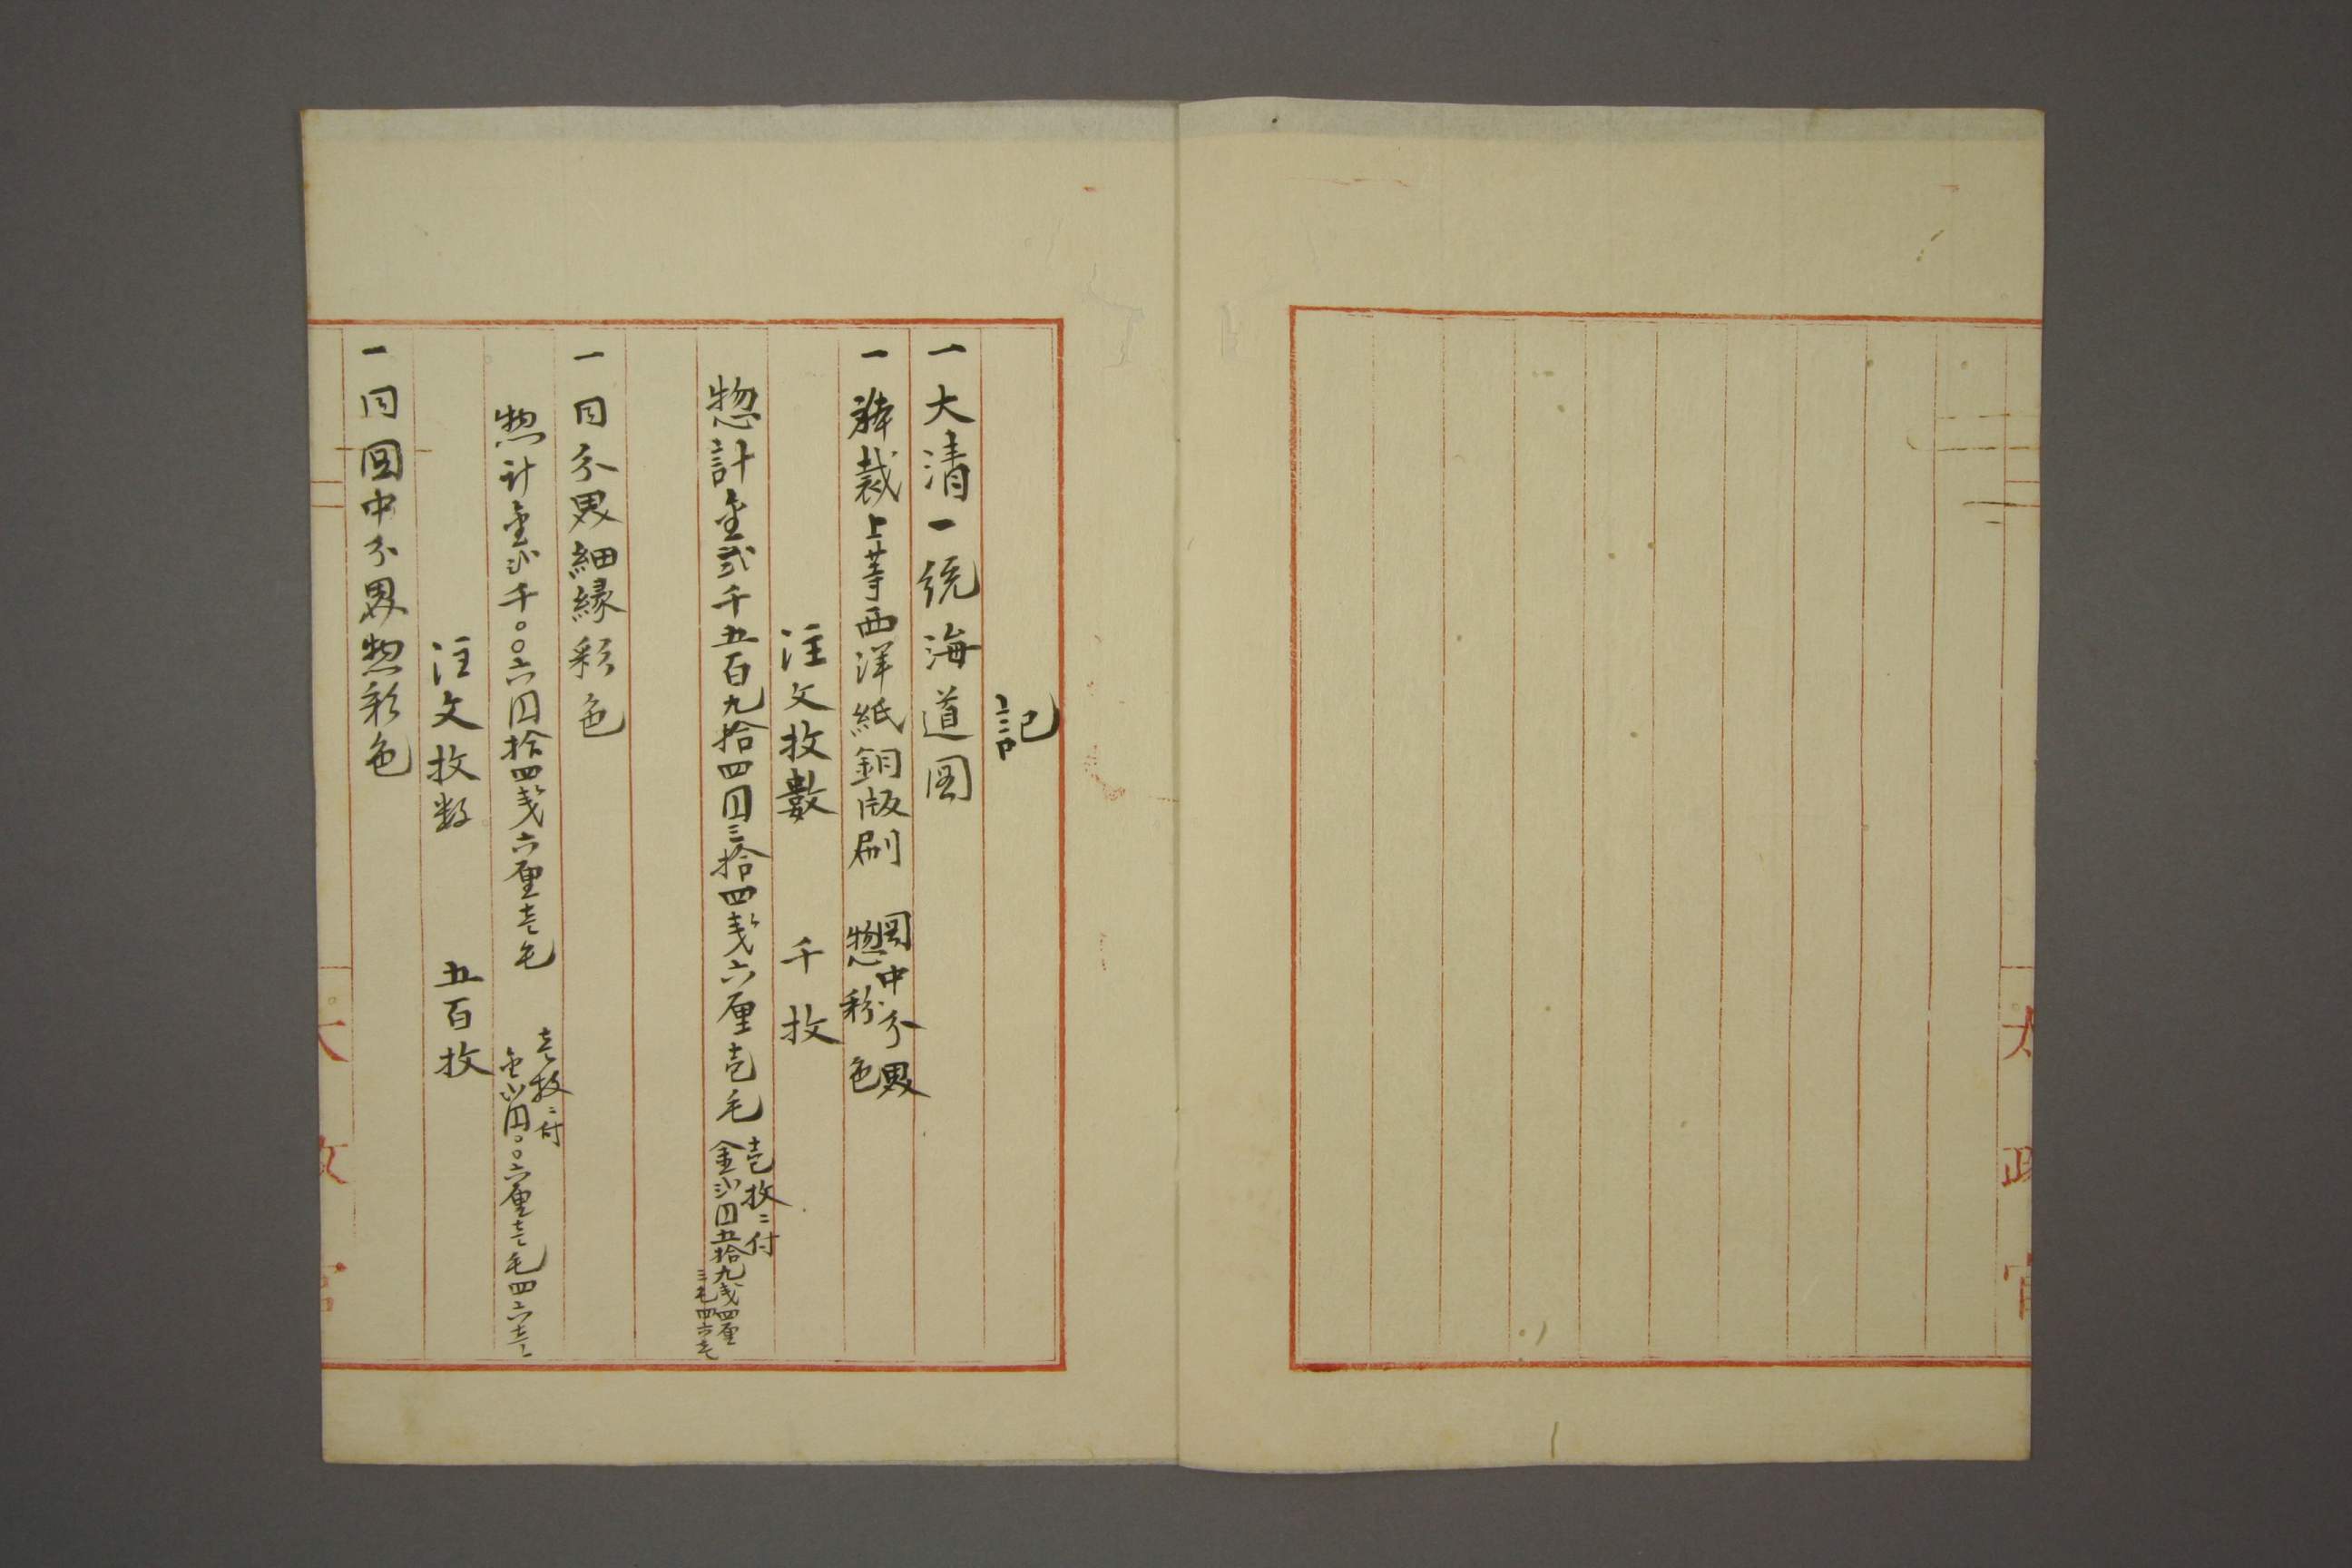 太政官
記
一大清一統海道図
一 裁上等西洋紙銅版刷
図中分界
惣彩色
注文枚數 千枚
惣計金貳千五百九拾四円三拾四銭六厘壱毛
壱枚ニ付
金弐円五拾九銭四厘
三毛四六壱
一同分界細縁彩色
惣計金弐千〇〇六円拾四銭六厘壱毛
壱枚ニ付
金弐円〇〇六厘壱毛四六壱
注文枚数 五百枚
一同図中分界惣彩色
太政官